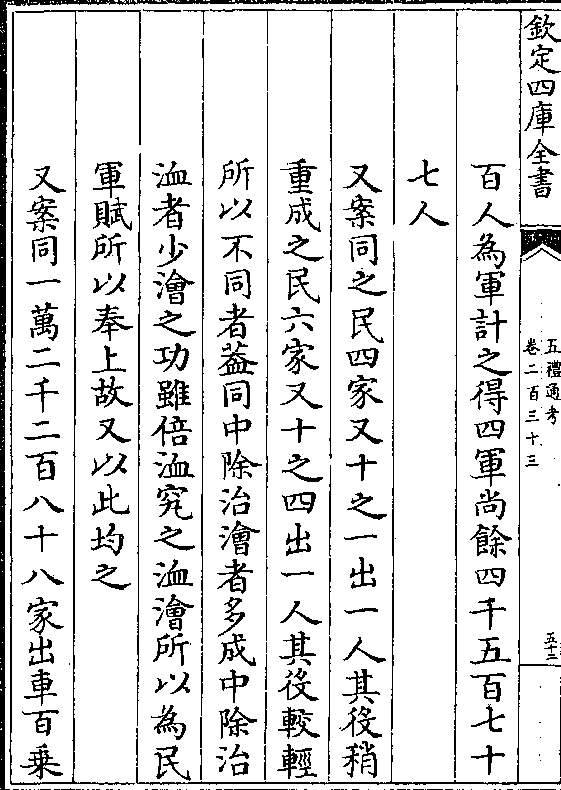 欽定四庫全書
五禮通考
卷二百三十三
五十二
百人為軍計之得四軍尚餘四千五百七十
七人
又案同之民四家又十之一出一人其役稍
重成之民六家又十之四出一人其役較輕
所以不同者葢同中除治澮者多成中除治
洫者少澮之功雖倍洫究之洫澮所以為民
軍賦所以奉上故又以此均之
又案同一萬二千二百八十八家出車百乗